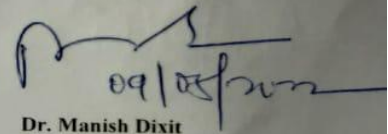 09/05/2022
Dr. Manish Dixit